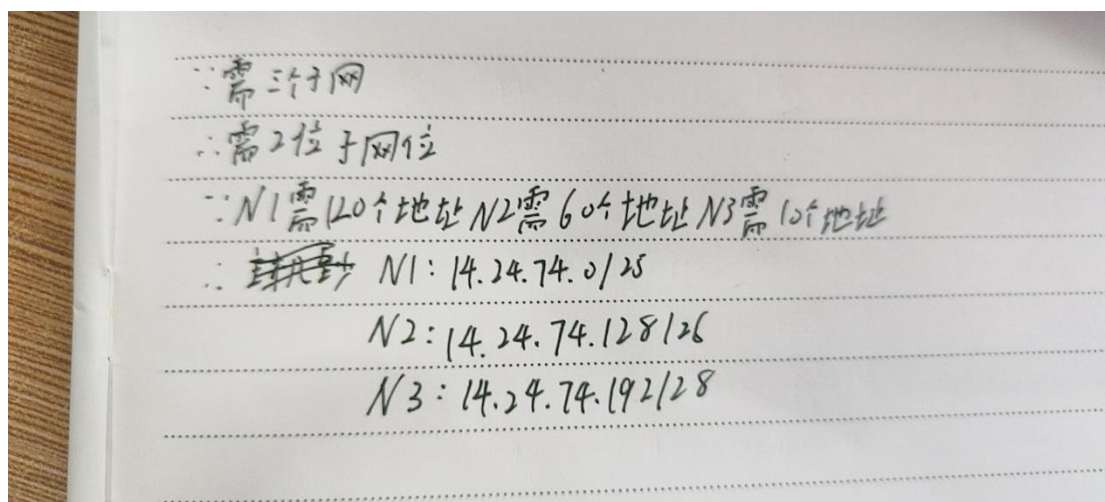 ∵需三个子网
∴需2位子网位
∵N1需120个地址 N2需60个地址 N3需10个地址
∴ N1: 14.24.74.0/25
N2: 14.24.74.128/26
N3: 14.24.74.192/28